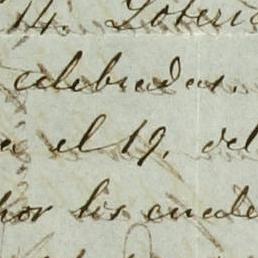 14. Loteri
celebradas.
a el 19. del
por los cuale